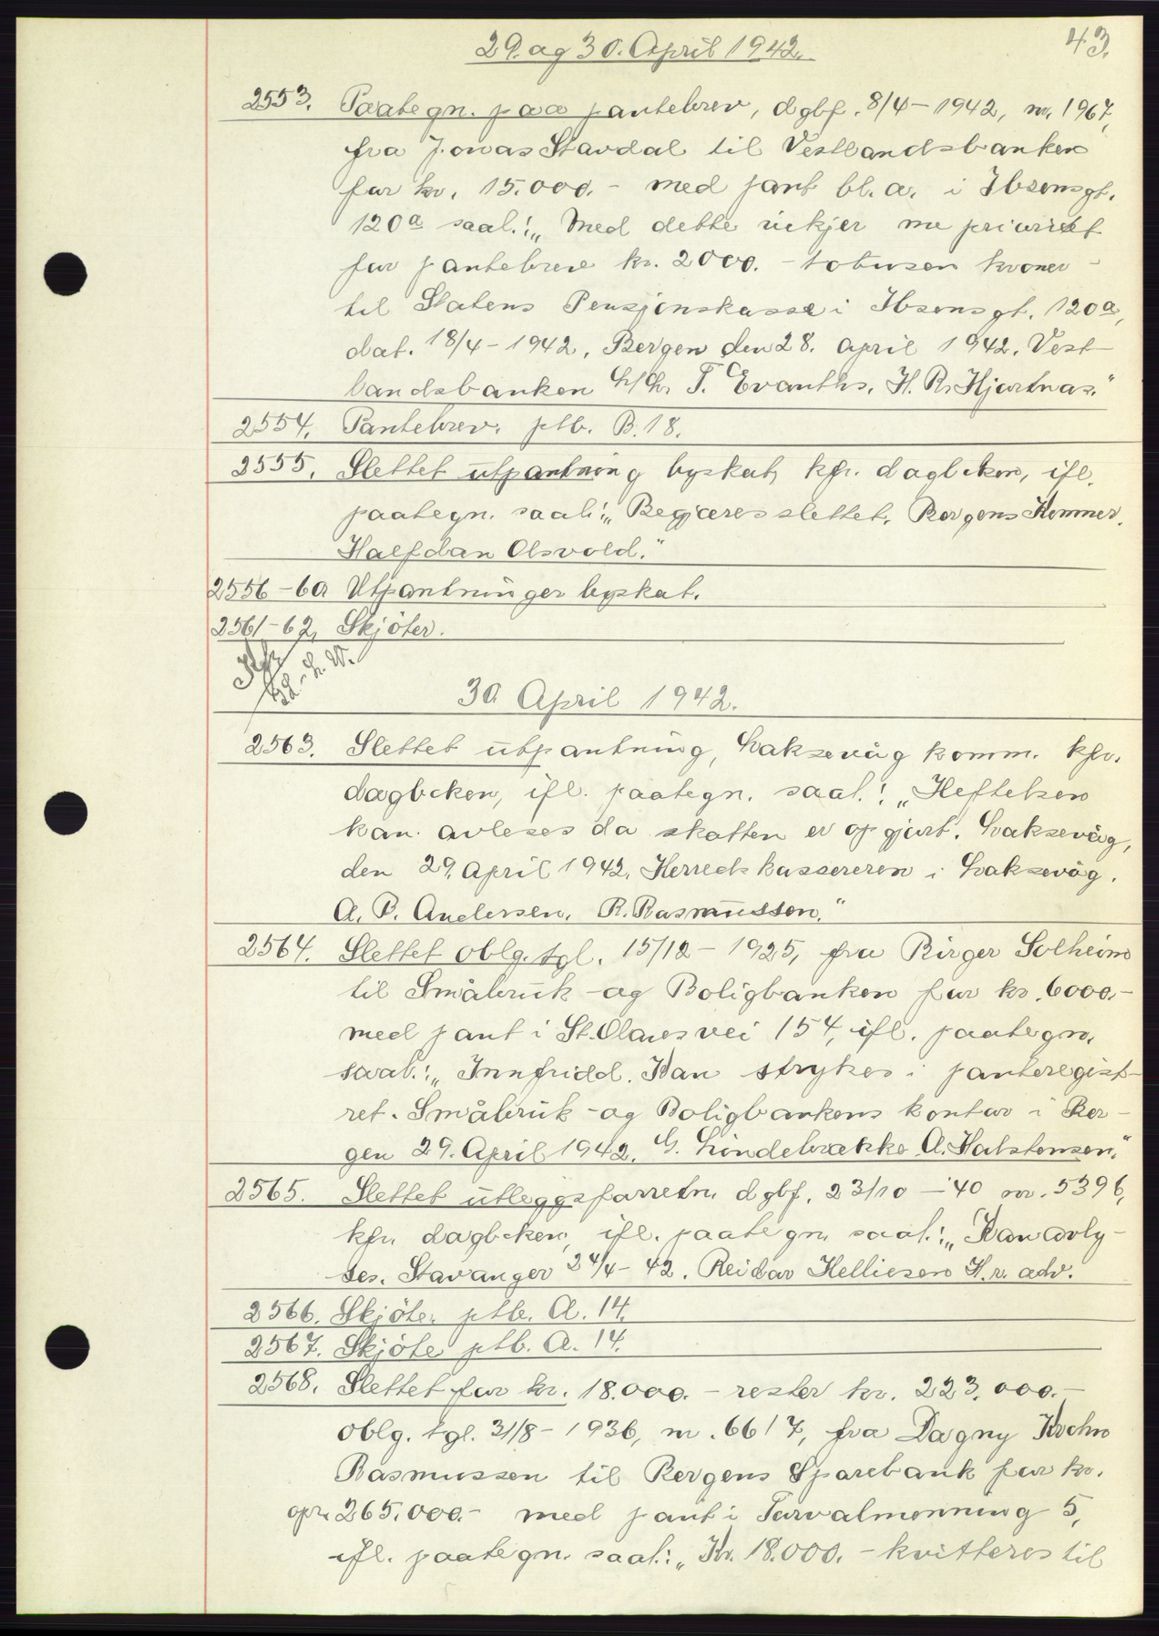 29. og 30. April 1942.
43.
2553. Paategn. paa pantebrev, dgbf. 8/4 - 1942, nr. 1967,
fra Jonas Stavdal til Vestlandsbanken
for kr. 15.000.- med pant bl.a. i Ibsensgt.
120a saal.: „Med dette vikjer me prioritet
for pantebrev kr. 2000. - totusen kroner -
til Statens Pensjonskasse i Ibsensgt. 120a,
dat. 18/4 - 1942, Bergen den 28. april 1942. Vest-
landsbanken h/k. T. Evanths. H. R. Hjartnas."
2554. Pantebrev. ptb. B. 18.
2555. Slettet utpantning byskat, kfr. dagboken, ifl.
paategn. saal.: „Begjæres slettet. Bergens Kemner.
Halfdan Olsvold."
2556-60 Utpantninger byskat.
2561-62, Skjöter.
30 April 1942.
2563. Slettet utpantning, Laksevåg komm. kfr.
dagboken, ifl. paategn. saal.: „Heftelsen
kan avleses da skatten er opgjort. Laksevåg,
den 29. April 1942. Herredskassereren i Laksevåg.
A. B. Andersen. R. Rasmussen."
2564. Slettet oblg. tgl. 15/12 - 1925, fra Birger Solheim
til Småbruk - og Boligbanken for kr. 6000.-
med pant i St. Olavs vei 154, ifl. paategn.
saal.: „Innfridd. Kan strykes i panteregist-
ret. Småbruk - og Boligbankens kontor i Ber-
gen 29. April 1942. G. Lindebrække A. Halstensen."
2565. Slettet utleggsforretn. dgbf. 23/10 - '40 nr. 5396,
kfr. dagboken, ifl. paategn. saal.: „Kan avly-
ses. Stavanger 24/4 - 42. Reidar Helliesen H.r. adv.
2566. Skjöte, ptb. A. 14.
2567. Skjöte ptb. A. 14.
2568. Slettet for kr. 18.000. - rester kr. 223.000.-
oblg. tgl. 31/8 - 1936, nr. 6617, fra Dagny Krohn
Rasmussen til Bergens Sparebank for kr.
opr. 265.000.- med pant i Torvalmenning 5,
ifl. paategn. saal.: „Kr. 18.000. - kvitteres til